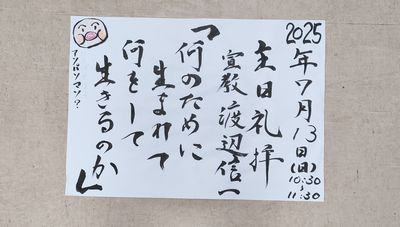 2025年7月13日(日)
10:30〜11:30
主日礼拝
宣教 渡辺信一
「何のために
生まれて
何をして
生きるのか」
アンパンマン?